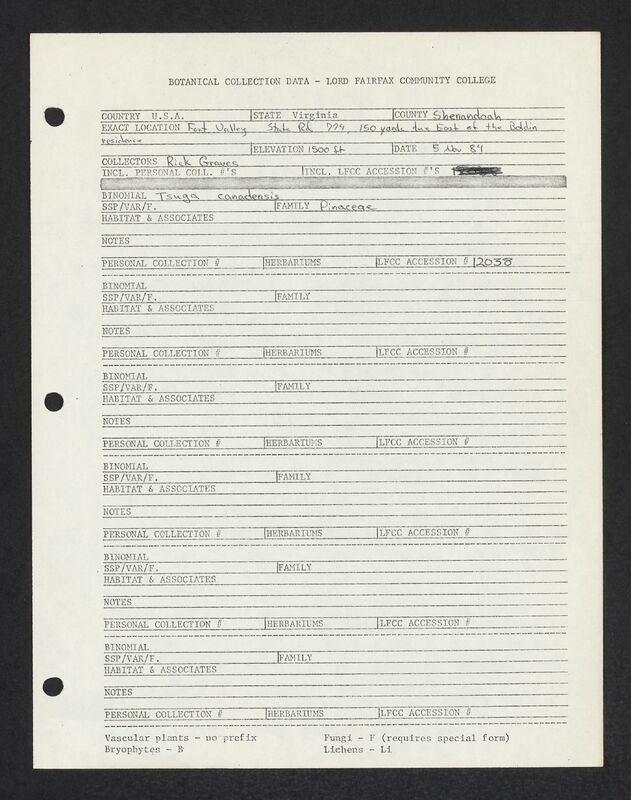 BOTANICAL COLLECTION DATA - LORD FAIRFAX COMMUNITY COLLEGE
COUNTRY U.S.A. STATE Virginia COUNTY Shenandoah
EXACT LOCATION Fort Valley State Rd 774 150 yards due East of the Boldin
residence
ELEVATION 1500 ft DATE 5 Nov 84
COLLECTORS Rick Graves
INCL. PERSONAL COLL. #'S INCL. LFCC ACCESSION #'S
BINOMIAL Tsuga canadensis
SSP/VAR/F. FAMILY Pinaceae
HABITAT & ASSOCIATES
NOTES
PERSONAL COLLECTION # HERBARIUMS LFCC ACCESSION # 12038
BINOMIAL
SSP/VAR/F. FAMILY
HABITAT & ASSOCIATES
NOTES
PERSONAL COLLECTION # HERBARIUMS LFCC ACCESSION #
BINOMIAL
SSP/VAR/F. FAMILY
HABITAT & ASSOCIATES
NOTES
PERSONAL COLLECTION # HERBARIUMS LFCC ACCESSION #
BINOMIAL
SSP/VAR/F. FAMILY
HABITAT & ASSOCIATES
NOTES
PERSONAL COLLECTION # HERBARIUMS LFCC ACCESSION #
BINOMIAL
SSP/VAR/F. FAMILY
HABITAT & ASSOCIATES
NOTES
PERSONAL COLLECTION # HERBARIUMS LFCC ACCESSION #
BINOMIAL
SSP/VAR/F. FAMILY
HABITAT & ASSOCIATES
NOTES
PERSONAL COLLECTION # HERBARIUMS LFCC ACCESSION #
Vascular plants - no prefix Fungi - F (requires special form)
Bryophytes - B Lichens - Li